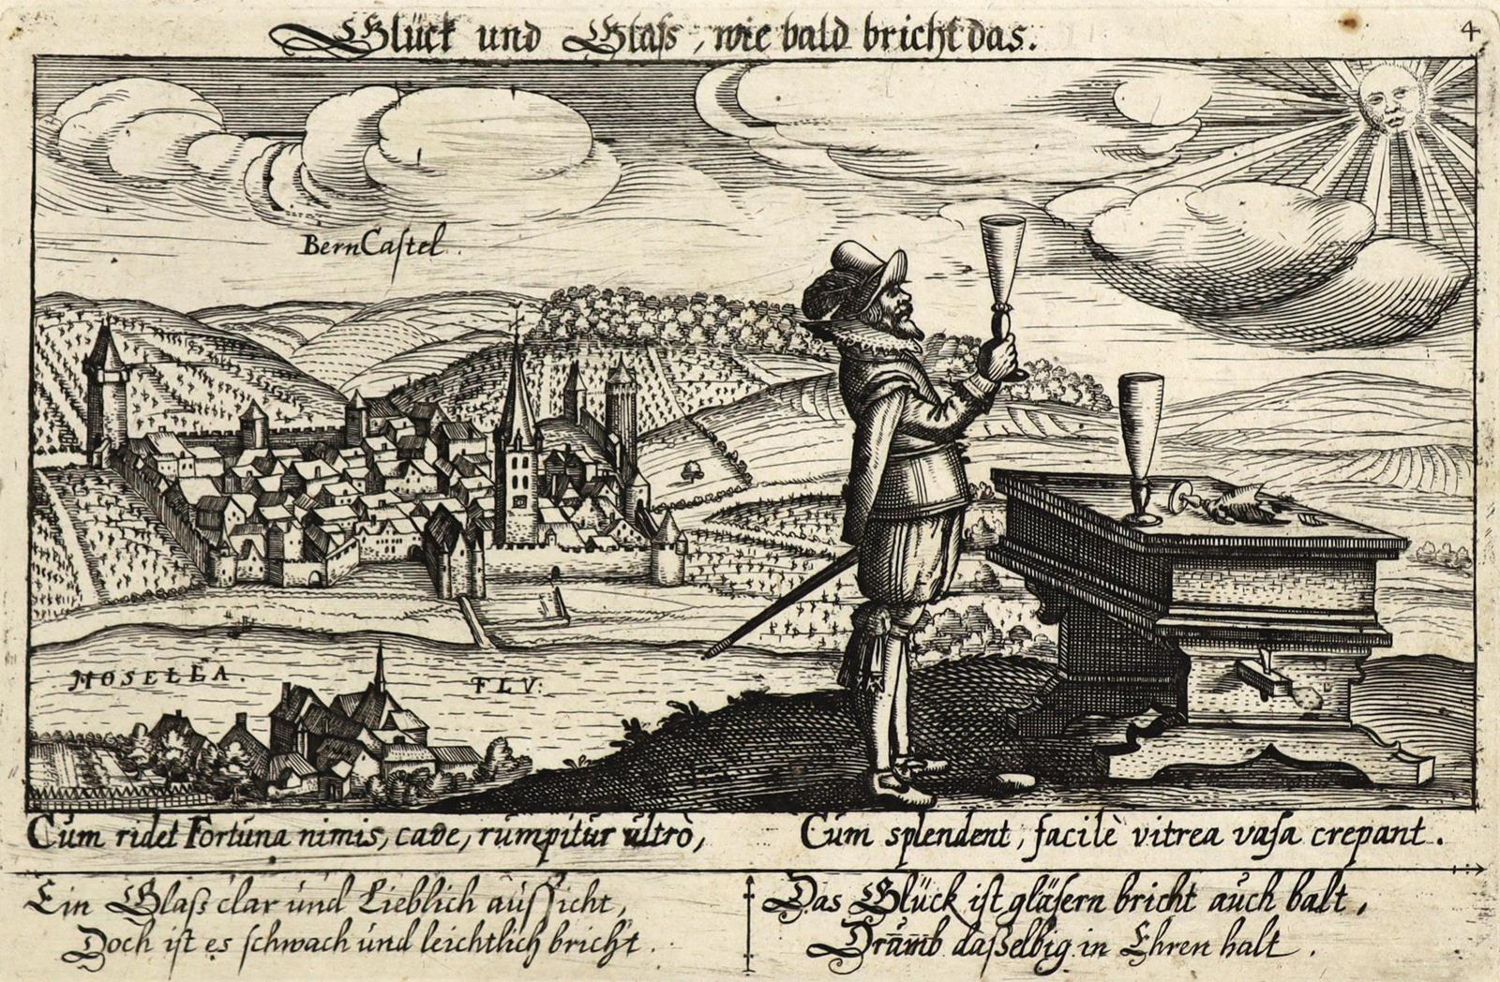 Glück und Glaſs, wie bald bricht das.
4
BernCaſtel
MOSELEA.
FLV:
Cum ridet Fortuna nimis, cave, rumpitur ultrò,
Cum splendent, facilè vitrea vaſa crepant.
Ein Glaß clar und Lieblich auſſicht,
Doch iſt es ſchwach und leichtlich bricht.
Das Glück iſt gläſern bricht auch balt,
Drumb daſſelbig in Ehren halt.